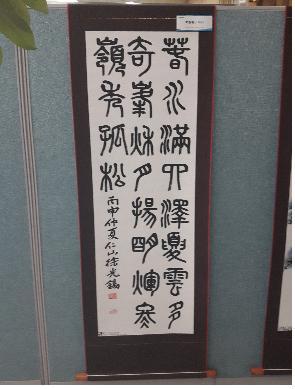 春水滿四澤夏雲多
奇峯秋月揚明煇冬
嶺秀孤松
丙申仲夏仁山徐光鎬